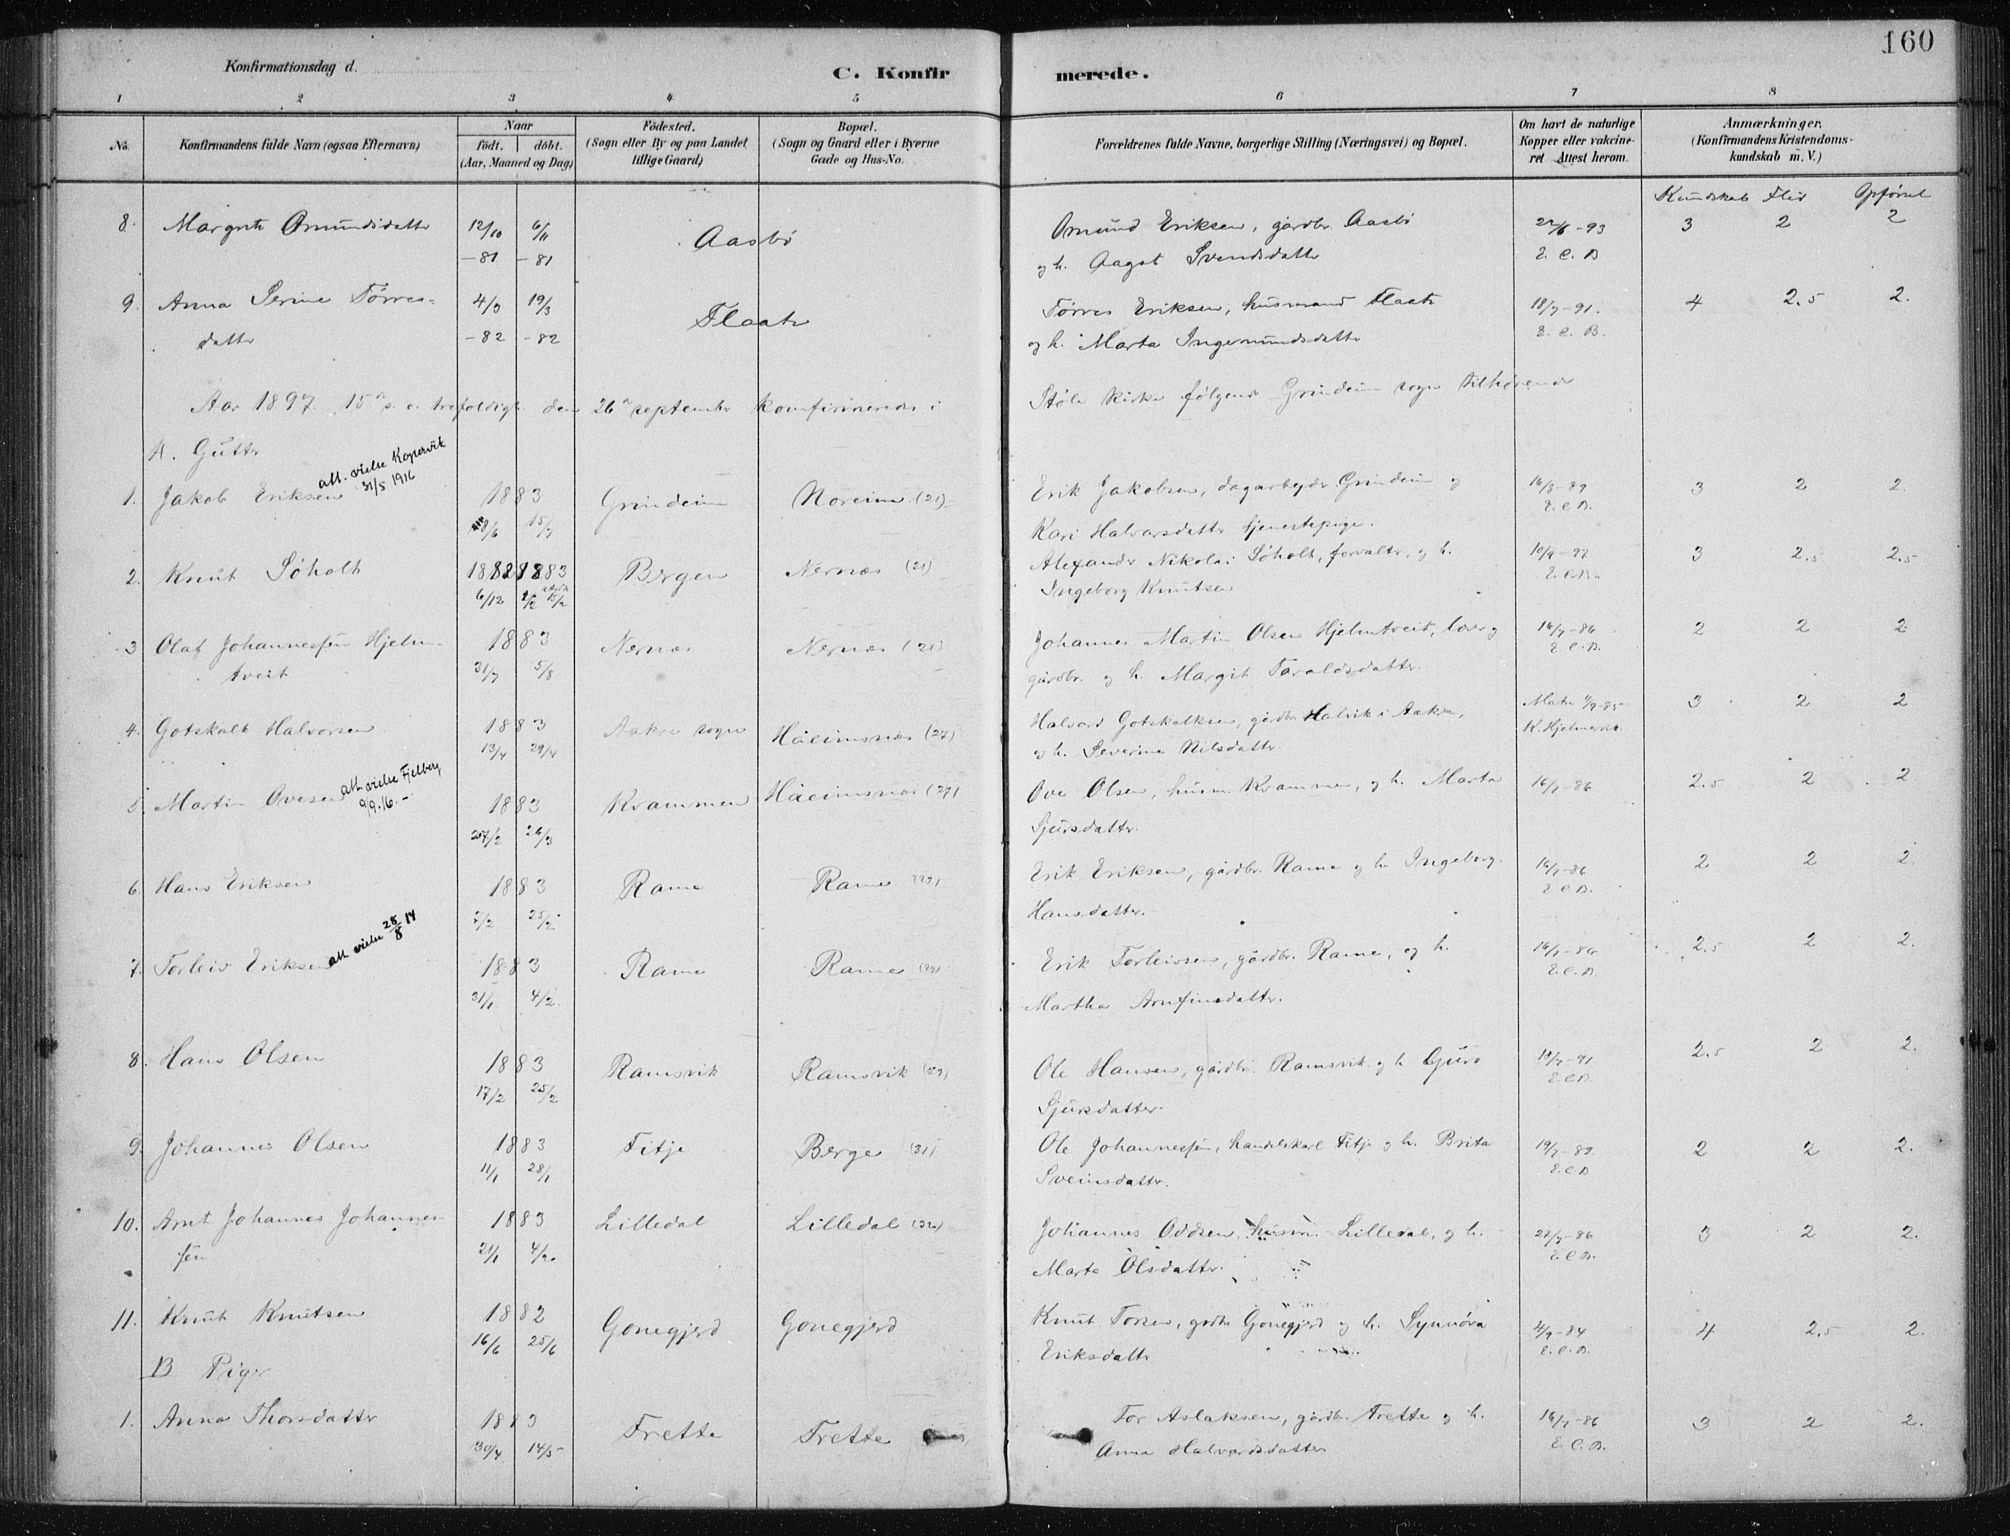 160
Konfirmationsdag d.
C. Konfir merede.
1 2 3 4 5 6 7 8
No. Konfirmandens fulde Navn (ogsaa Efternavn) Naar født. døbt. (Aar, Maaned og Dag) Fødested. (Sogn eller By og paa Landet tillige Gaard) Bopæl. (Sogn og Gaard eller i Byerne Gade og Hus-No. Forældrenes fulde Navne, borgerlige Stilling (Næringsvei) og Bopæl. Om havt de naturlige Kopper eller vakcineret Attest herom. Anmærkninger. (Konfirmandens Kristendomskundskab m. V.)
Kundskab Flid Opførsel
8. Margrete Omundsdatter 12/10 6/11 Aasbø Omund Eriksen, gårdbr. Aasbø 22/6-93 3 2 2
-81 -81 og h. Aagot Svendsdatter E.C.B
9. Anna Serine Tørres- 4/3 19/3 Flaate Tørres Eriksen, husmand Flaate 18/7-91. 4 2.5 2.
datter -82 -82 og h. Marta Ingemundsdatter E.C.B.
Aar 1897. 15de s. e. trefoldigh. den 26de september konfirmeredes i Støle kirke følgende Grindeim sogn tilhørende
A. Gutter
1. Jakob Eriksen att. vielse Kopervik 31/5 1916 1883 Grindeim Noreim (21) Erik Jakobsen, dagarbejder Grindeim og 16/8-89 3 2 2.
8/6 15/7 Kari Halvarsdatter tjenestepige. E.C.B.
2. Knut Søholt 1882 1883 Bergen Nernæs (21) Alexander Nikolai Søholt, forvalter, og h. 10/9-97 3 2.5 2.5
6/12 15/2 Ingeborg Knutsen E.C.B.
3 Olaf Johannessen Hjelm- 1883 Nernæs Nernæs (21) Johannes Martin Olsen Hjelmtveit, lærer og 16/7-86 2 2 2
tveit 31/7 5/8 gårdbr. og h. Margit Taraldsdatter. E.C.B.
4. Gotskalk Halvorsen 1883 Aakre sogn Håeimsnæs (27) Halvard Gotskalksen, gårdbr. Halvik i Aakre, 3 2 2
13/4 29/4 og h. Severine Nilsdatter K. Hjelmervik
5. Martin Ovesen att. vielse Fjelberg 9/9.16.- 1883 Krammen Håeimsnæs (27) Ove Olsen, husm. Krammen, og h. Marta 16/7-86 2.5 2 2
27/2 26/3 Sjursdatter.
6. Hans Eriksen 1883 Rame Rame (29) Erik Eriksen, gårdbr. Rame og h. Ingeborg 16/7-86 2 2 2.
2/2 25/2 Hansdatter. E.C.B.
7. Torleiv Eriksen att vielse 28/8 14 1883 Rame Rame (29) Erik Torleivsen, gårdbr. Rame, og h. 16/7-86 2.5 2 2.
31/1 4/2. Martha Arnfinsdatter. E.C.B.
8. Hans Olsen 1883 Ramsvik Ramsvik (29) Ole Hansen, gårdbr. Ramsvik og h. Gjuro 18/7-91 2.5 2 2.
17/2 25/2 Sjursdatter. E.C.B.
9. Johannes Olsen 1883 Fitje Berge (31) Ole Johannessen, handelskarl Fitje og h. Brita 2 2 2.
11/1 28/1 Sveinsdatter. E.C.B
10. Arnt Johannes Johannes- 1883 Lilledal Lilledal (32) Johannes Oddsen, husm. Lilledal, og h. 3 2 2.
sen 21/1 4/2. Marta Olsdatter. E.C.B.
11. Knut Knutsen 1882 Gonegjerd Gonegjerd Knut Torsen, gårdbr. Gonegjerd og h. Synnøva 4/9-84 4 2.5 2.
16/6 25/6 Eriksdatter E.C.B.
B Piger
1. Anna Thorsdatter 1883 Frette Frette Tor Aslaksen, gårdbr. Frette og h. 16/7-86 3 2 2.
30/4 14/5 Anna Halvardsdatter E.C.B.